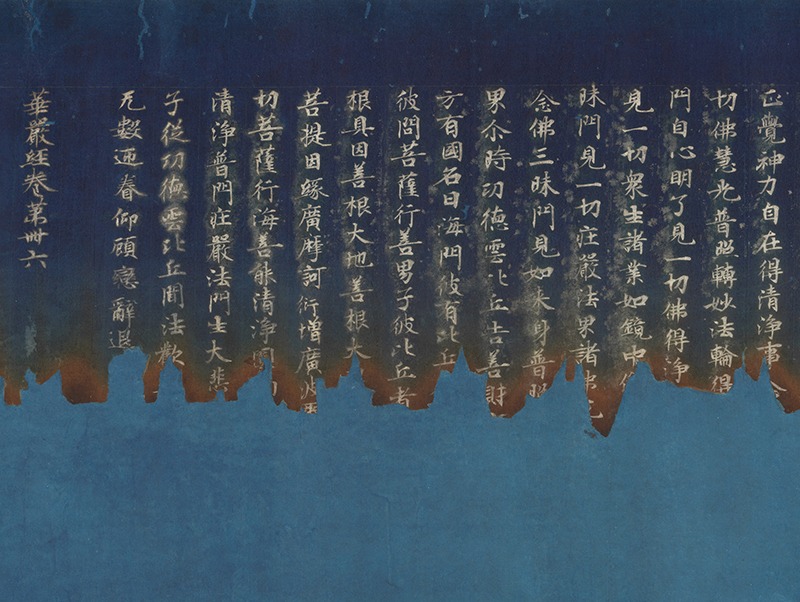 正覺神力自在得清淨事
切佛慧光普照轉妙法輪得
門自心明了見一切佛得淨
見一切衆生諸業如鏡中
昧門見一切庄嚴法界諸
念佛三昧門見如来身普照
界尒時功德雲比丘告善財
方有國名曰海門彼有比丘
彼問菩薩行善男子彼比丘者
根具因善根大地善根大
菩提因緣廣摩訶衍增廣
切菩薩行海善能清淨
清淨普門庄嚴法門生大悲
子從功德雲比丘聞法歡
无數迊眷仰顧戀辭退
華嚴経卷第卌六